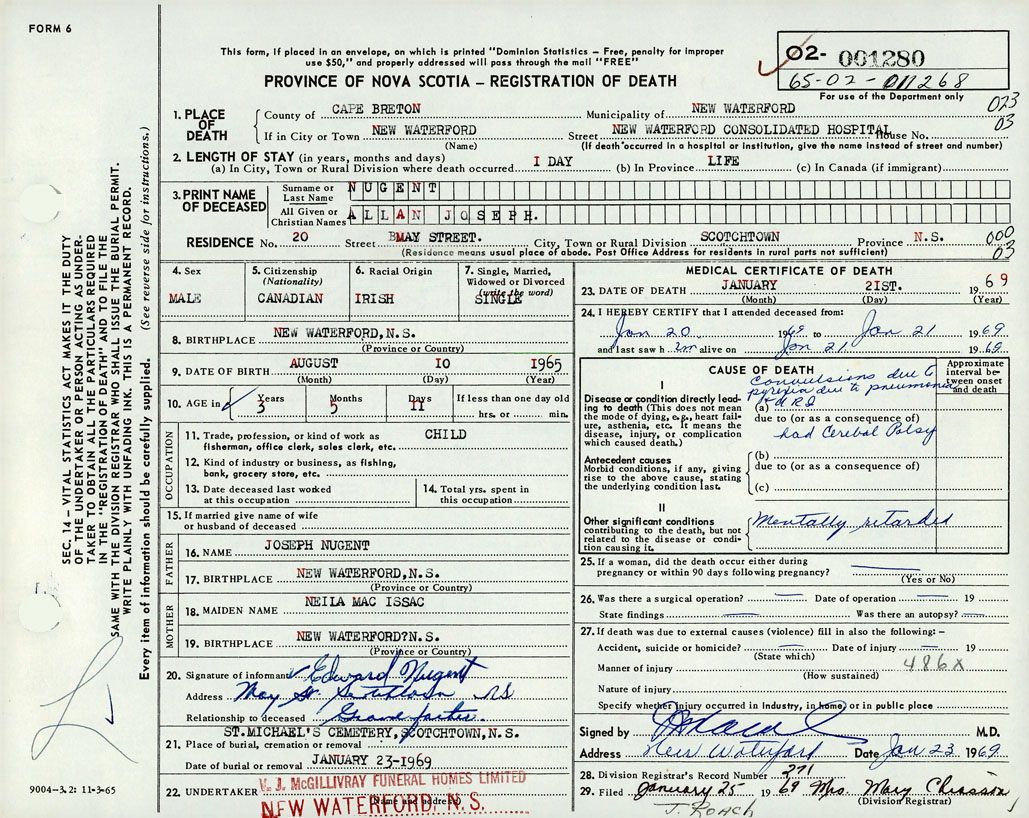 FORM 6
This form, if placed in an envelope, on which is printed "Dominion Statistics – Free, penalty for improper
use $50," and properly addressed will pass through the mail "FREE"
PROVINCE OF NOVA SCOTIA – REGISTRATION OF DEATH
02- 001280
65-02-011268
For use of the Department only
023
03
1. PLACE OF DEATH
County of CAPE BRETON Municipality of NEW WATERFORD
If in City or Town NEW WATERFORD Street NEW WATERFORD CONSOLIDATED HOSPITAL House No.
(Name) (If death occurred in a hospital or institution, give the name instead of street and number)
2. LENGTH OF STAY (in years, months and days)
(a) In City, Town or Rural Division where death occurred I DAY (b) In Province LIFE (c) In Canada (if immigrant)
3. PRINT NAME OF DECEASED
Surname or Last Name NUGENT
All Given or Christian Names ALLAN JOSEPH.
RESIDENCE No. 20 Street MAY STREET. City, Town or Rural Division SCOTCHTOWN Province N.S. 000
03
(Residence means usual place of abode. Post Office Address for residents in rural parts not sufficient)
4. Sex
MALE
5. Citizenship
(Nationality)
CANADIAN
6. Racial Origin
IRISH
7. Single, Married,
Widowed or Divorced
(write the word)
SINGLE
8. BIRTHPLACE NEW WATERFORD,N.S.
(Province or Country)
9. DATE OF BIRTH AUGUST 10 1965
(Month) (Day) (Year)
10. AGE in Years Months Days If less than one day old
3 5 11 hrs. or min.
OCCUPATION
11. Trade, profession, or kind of work as CHILD
fisherman, office clerk, sales clerk, etc.
12. Kind of industry or business, as fishing,
bank, grocery store, etc.
13. Date deceased last worked
at this occupation
14. Total yrs. spent in
this occupation
15. If married give name of wife
or husband of deceased
FATHER
16. NAME JOSEPH NUGENT
17. BIRTHPLACE NEW WATERFORD,N.S.
(Province or Country)
MOTHER
18. MAIDEN NAME NEILA MAC ISSAC
19. BIRTHPLACE NEW WATERFORD?N.S.
(Province or Country)
20. Signature of informant Edward Nugent
Address May St Scotchtown NS
Relationship to deceased Grandfather
ST.MICHAEL'S CEMETERY,SCOTCHTOWN,N.S.
21. Place of burial, cremation or removal
Date of burial or removal JANUARY 23-1969
22. UNDERTAKER V. J. McGILLIVRAY FUNERAL HOMES LIMITED
(Name and address)
NEW WATERFORD, N. S.
MEDICAL CERTIFICATE OF DEATH
23. DATE OF DEATH JANUARY 21ST. 1969
(Month) (Day) (Year)
24. I HEREBY CERTIFY that I attended deceased from:
Jan 20 1969 to Jan 21 1969
and last saw him alive on Jan 21 1969
CAUSE OF DEATH
Approximate interval between onset and death
I
Disease or condition directly leading to death (This does not mean the mode of dying, e.g., heart failure, asthenia, etc. It means the disease, injury, or complication which caused death.)
Convulsions due to
pyrexia due to pneumonia
(a) URI
due to (or as a consequence of)
had Cerebal Palsy
Antecedent causes
Morbid conditions, if any, giving rise to the above cause, stating the underlying condition last.
(b)
due to (or as a consequence of)
(c)
II
Other significant conditions
contributing to the death, but not related to the disease or condition causing it.
Mentally retarded
25. If a woman, did the death occur either during
pregnancy or within 90 days following pregnancy?
(Yes or No)
26. Was there a surgical operation? Date of operation 19
State findings Was there an autopsy?
27. If death was due to external causes (violence) fill in also the following: –
Accident, suicide or homicide? Date of injury 19
(State which)
Manner of injury 486X
(How sustained)
Nature of injury
Specify whether injury occurred in industry, in home, or in public place
Signed by M.D.
Address New Waterford Date Jan 23 1969
28. Division Registrar's Record Number 271
29. Filed January 25 1969 Mrs. Mary Chiasson
(Division Registrar)
J. ROACH
SEC. 14 – VITAL STATISTICS ACT MAKES IT THE DUTY
OF THE UNDERTAKER OR PERSON ACTING AS UNDER-
TAKER TO OBTAIN ALL THE PARTICULARS REQUIRED
IN THE "REGISTRATION OF DEATH" AND TO FILE THE
SAME WITH THE DIVISION REGISTRAR WHO SHALL ISSUE THE BURIAL PERMIT.
WRITE PLAINLY WITH UNFADING INK. THIS IS A PERMANENT RECORD.
Every item of information should be carefully supplied. (See reverse side for instructions.)
9004-3.2: 11-3-65